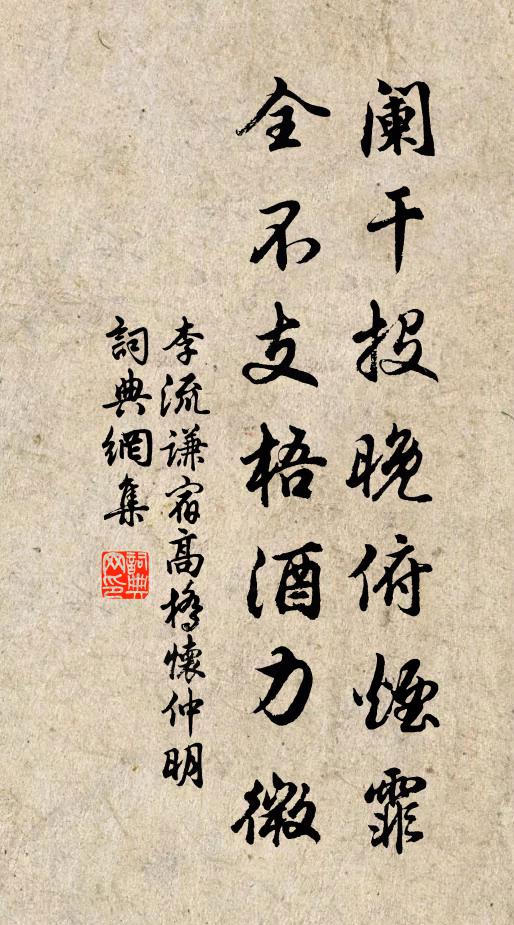 阑干投晚俯煙霏
全不支梧酒力微
李流谦宿高橋懷仲明
詞典網集
詞典网印